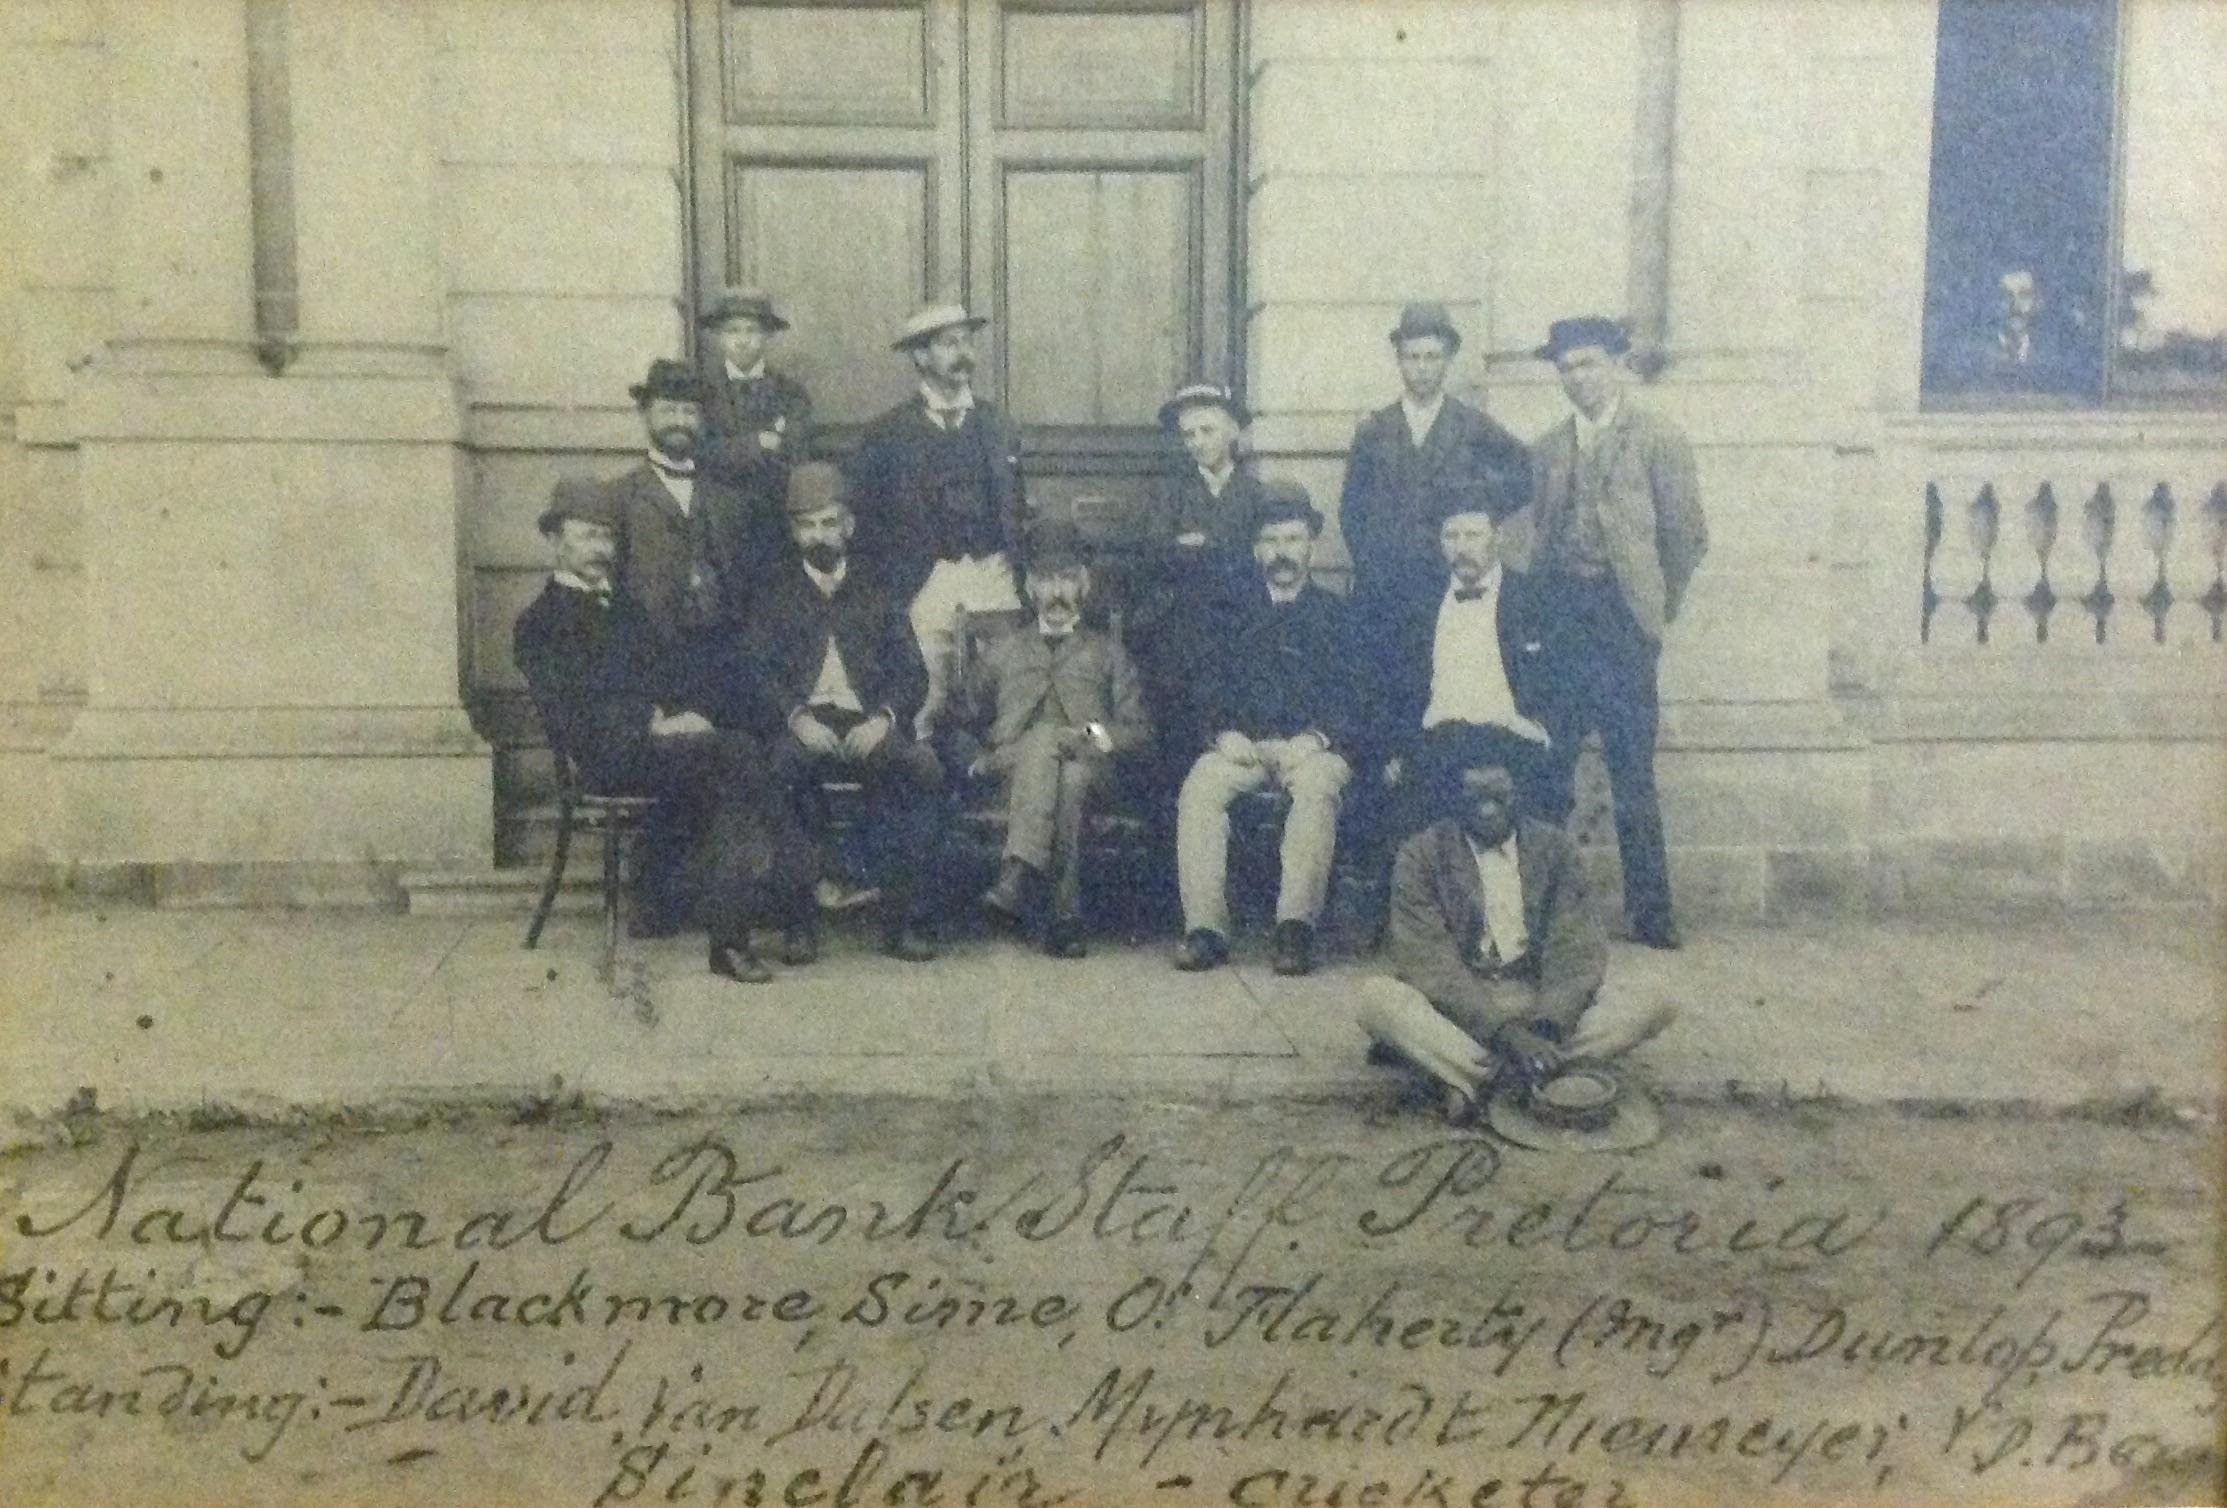 National Bank Staff Pretoria 1893
Sitting:- Blackmore, Sime, O'Flaherty (Mngr) Dunlop,
Standing:- David, Van Dulsen, Mynhardt Niemeyer, V.D.
Sinclair - cricketer